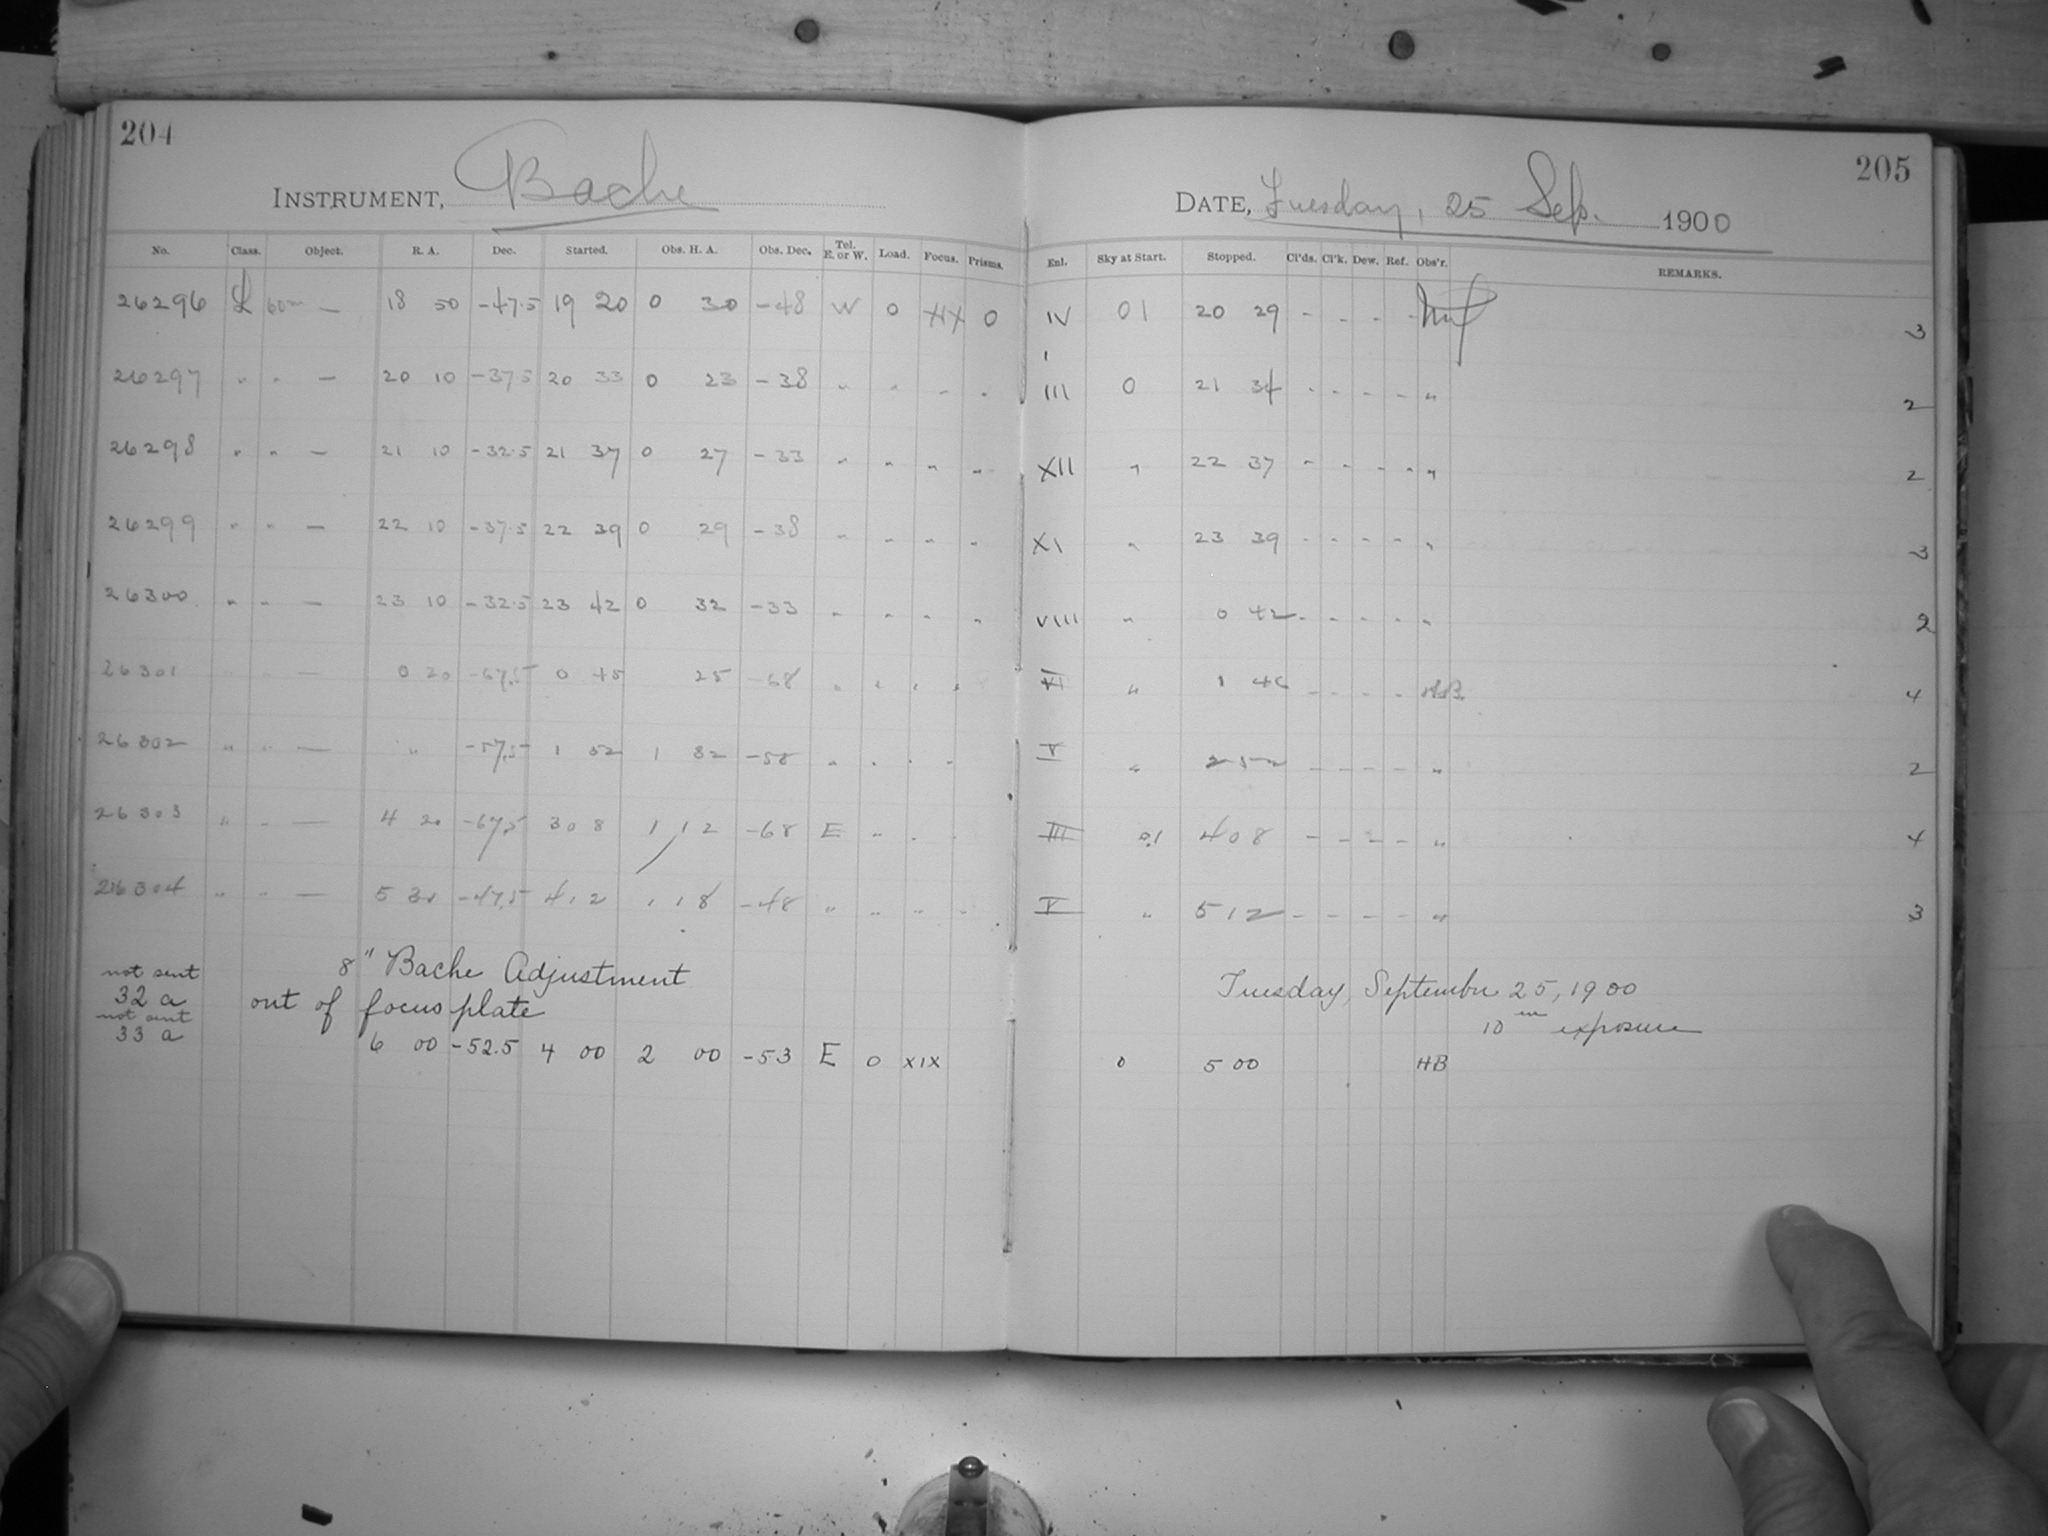 204
INSTRUMENT, Bache
No. Class. Object. R. A. Dec. Started. Obs. H. A. Obs. Dec. Tel. E. or W. Load. Focus. Prisms.
26296 L 60m — 18 50 -47.5 19 20 0 30 -48 W 0 XIX 0
26297 " " — 20 10 -37.5 20 33 0 23 -38 " " " "
26298 " " — 21 10 -32.5 21 37 0 27 -33 " " " "
26299 " " — 22 10 -37.5 22 39 0 29 -38 " " " "
26300 " " — 23 10 -32.5 23 42 0 32 -33 " " " "
26301 " " — 0 20 -67.5 0 45 25 -68 " " " "
26302 " " — " -57.5 1 52 1 32 -58 " " " "
26303 " " — 4 20 -67.5 3 08 1 12 -68 E " " "
26304 " " — 5 30 -47.5 4 12 1 18 -48 " " " "
not sent
32 a
not sent
33 a
8" Bache Adjustment
out of focus plate
6 00 -52.5 4 00 2 00 -53 E 0 XIX
205
DATE, Tuesday, 25 Sep. 1900
Enl. Sky at Start. Stopped. Cl'ds. Cl'k. Dew. Ref. Obs'r. REMARKS.
IV 01 20 29 - - - - 3
III 0 21 34 - - - - " 2
XII " 22 37 - - - - " 2
XI " 23 39 - - - - " 3
VIII " 0 42 - - - - " 2
VI " 1 46 - - - - HB. 4
V " 2 52 - - - - " 2
III 0.1 4 08 - - - - " 4
V " 5 12 - - - - " 3
Tuesday, September 25, 1900
10m exposure
0 5 00 HB